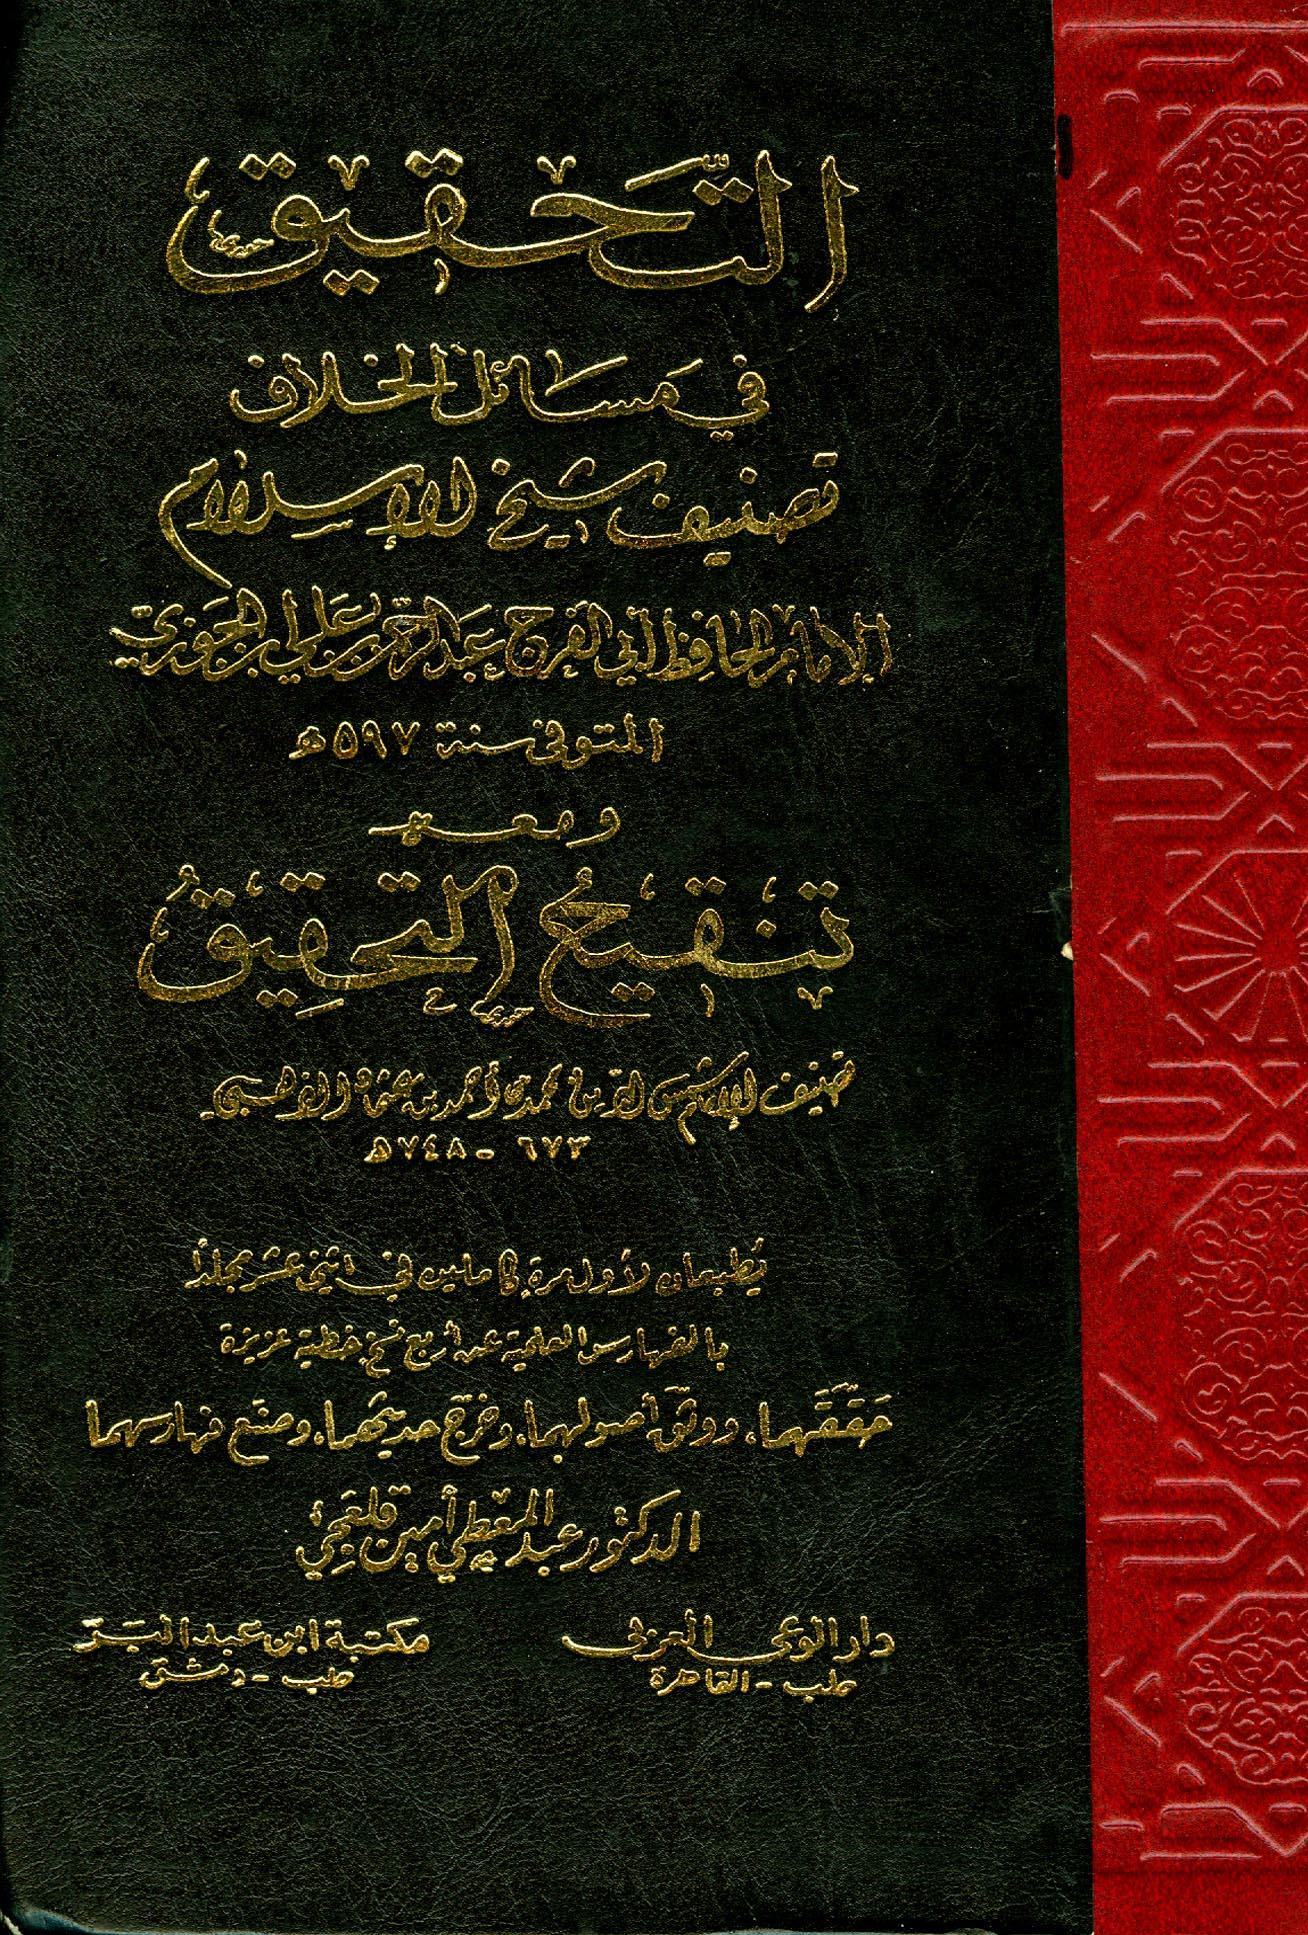 التَّحقيق
في مسائل الخلاف
تصنيف شيخ الإسلام
الإمام الحافظ أبي الفرج عبد الرحمن بن علي ابن الجوزيّ
المتوفى سنة ٥٩٧ هـ
ومعه
تنقيحُ التحقيقُ
تصنيف الإمام شمس الدين محمد بن أحمد بن عثمان الذهبي
٦٧٣ - ٧٤٨ هـ
يُطبعان لأول مرة كاملين في اثني عشر مجلداً
بالفهارس العلمية عن أربع نسخ خطية عزيزة
حَقَّقَهما، ووثّق أصولهما، وخرّج حديثهما، وصنع فهارسهما
الدكتور عبد المعطي أمين قلعجي
دار الوعي العربي
حلب - القاهرة
مكتبة ابن عبد البَرّ
حلب - دمشق